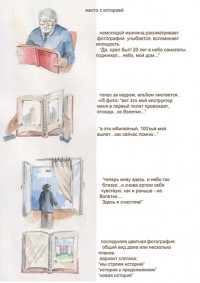 место с историей
немолодой мужчина рассматривает
фотографии. улыбается, вспоминает
молодость
"Да, орел был! 20 лет в небо самолеты
поднимал... небо, мой дом..."
голос за кадром, альбом листается.
ч/б фото: "вот это мой инструктор
меня в первый полет провожает,
отсюда, со Взлетки...."
"а это юбилейный, 100тый мой
вылет...как сейчас помню..."
"теперь живу здесь, и небо так
близко...и снова орлом себя
чувствую, как и раньше - на
Взлетке....
Здесь я счастлив"
последняя цветная фотография:
общий вид дома или несколько
планов.
вариант слогана:
"мы строим историю"
"история с продолжением"
"новая история"